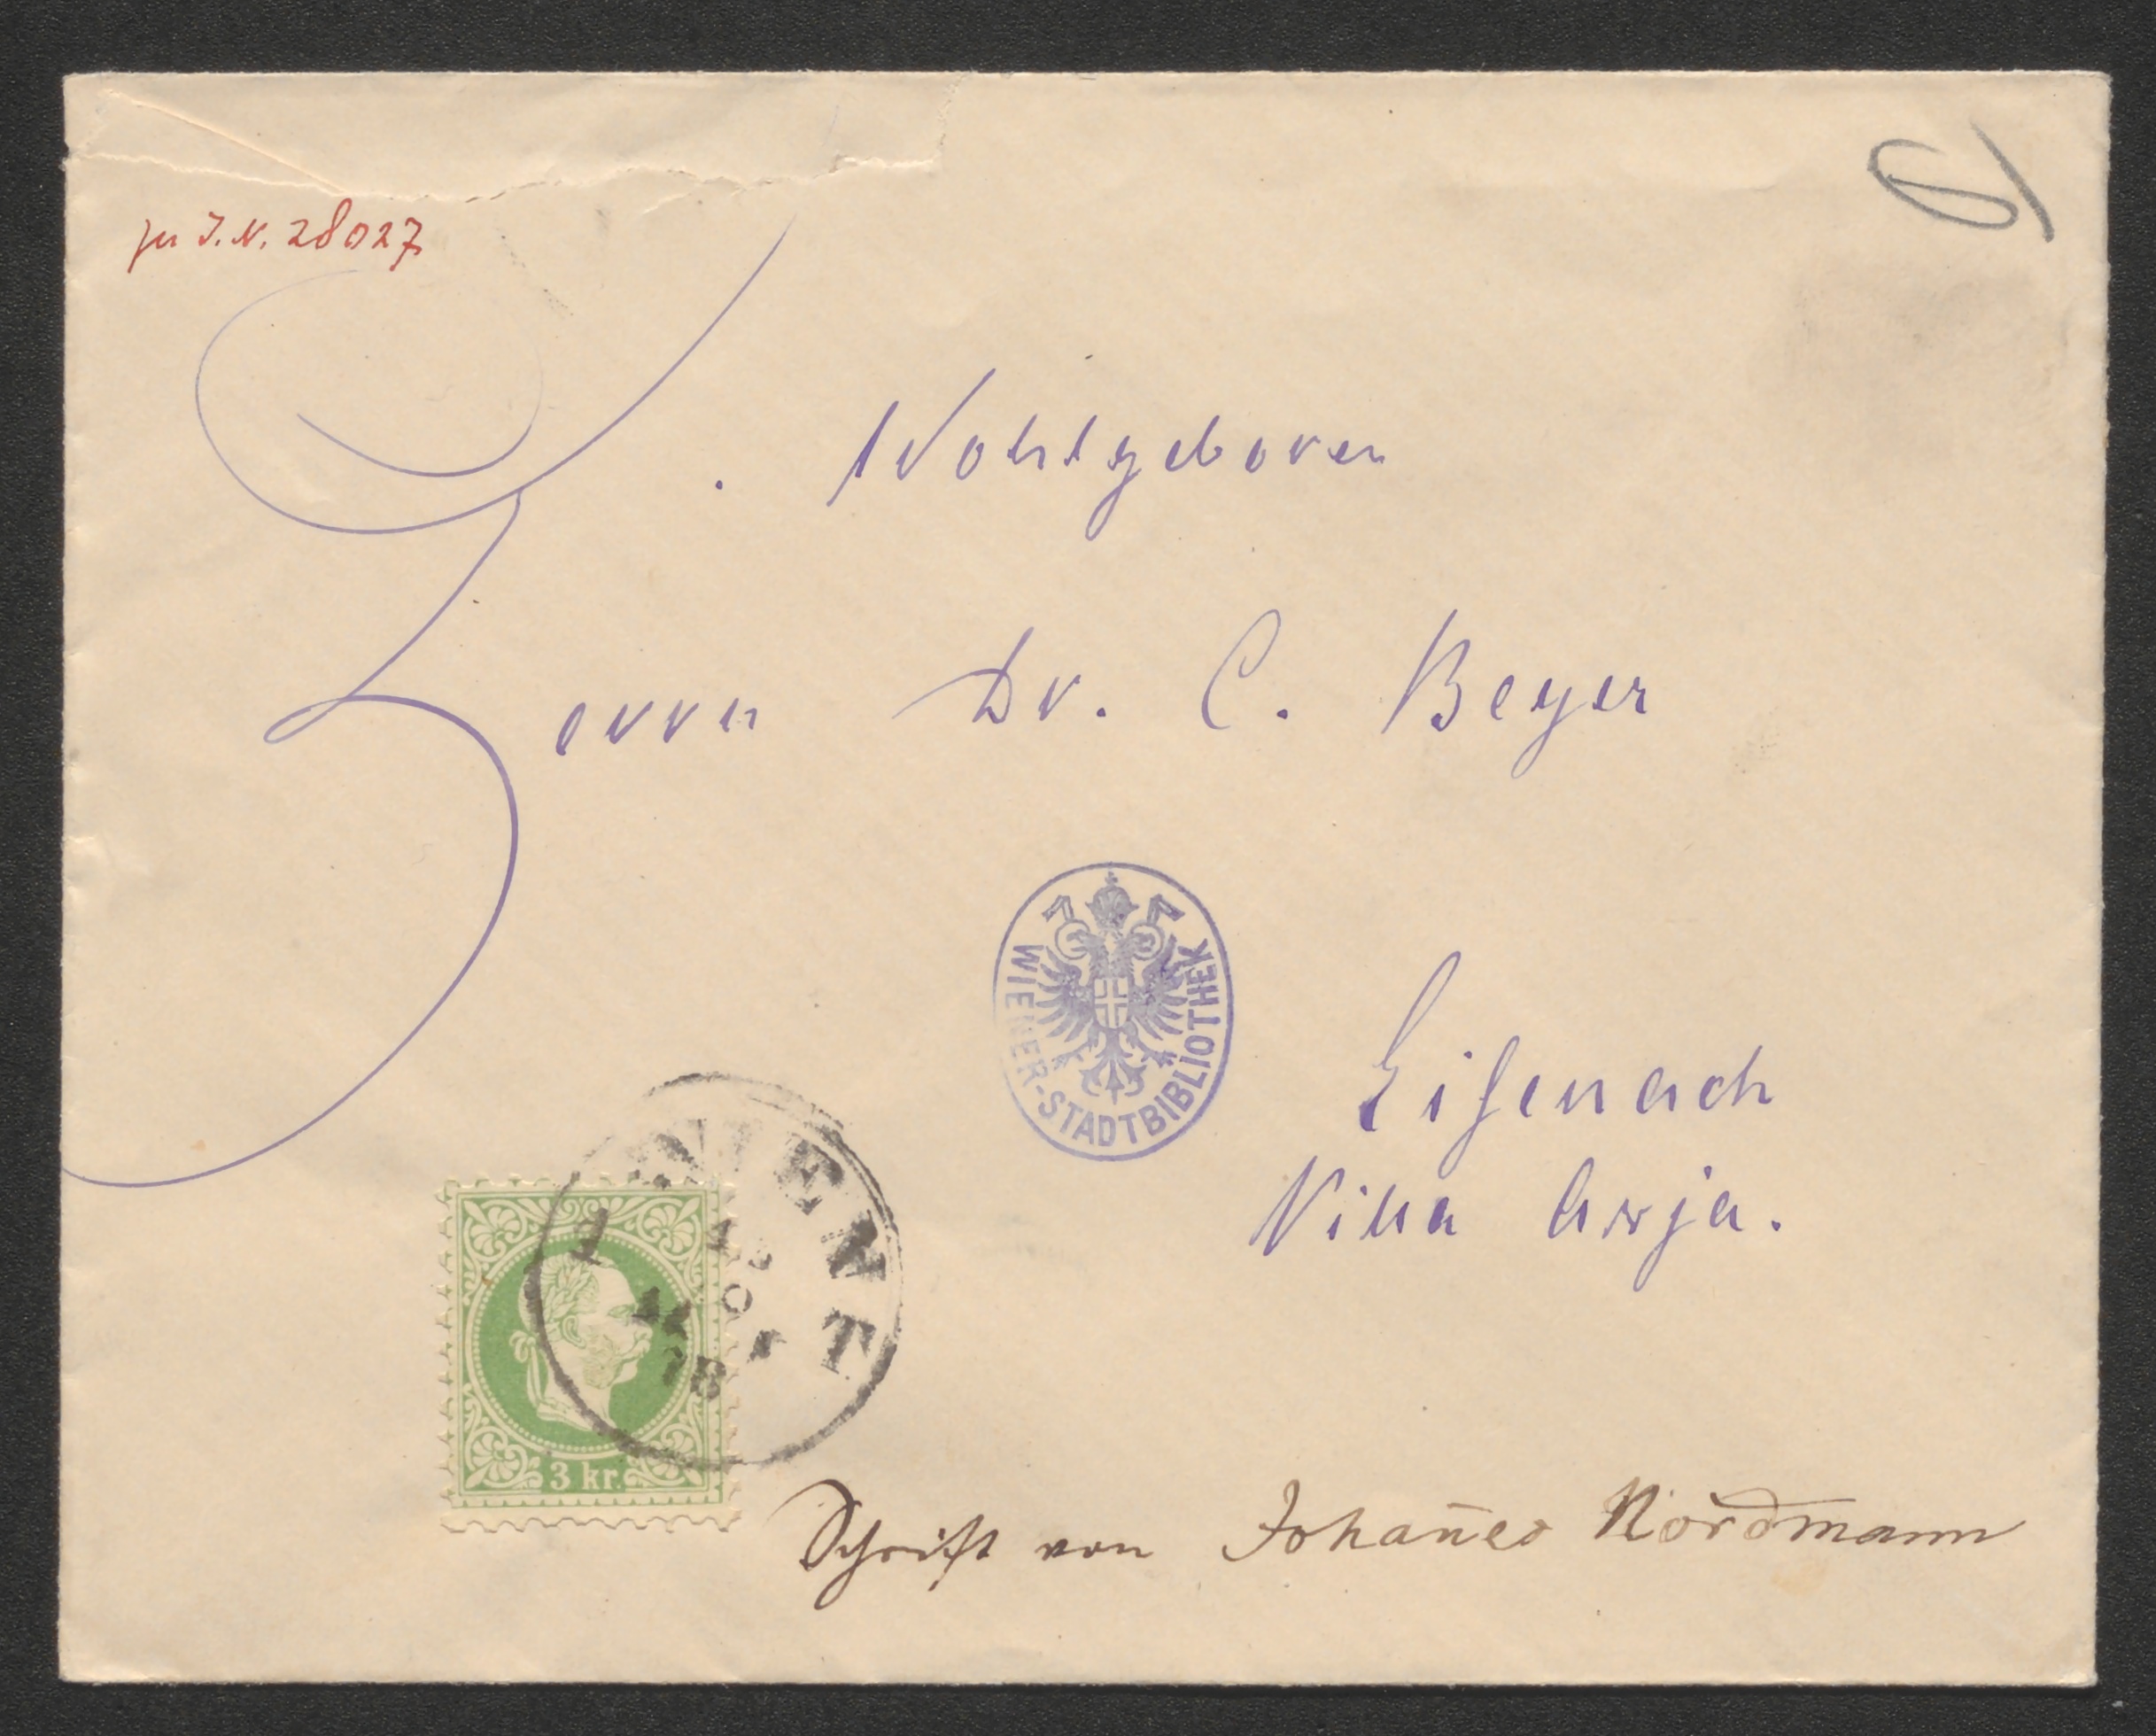 zu I.N. 28027
Sr. Wohlgeboren
Herrn Dr. C. Beyer
WIENER-STADTBIBLIOTHEK
Eisenach
Villa
WIEN
78
3 kr.
Schrift von Johañes Nordmann